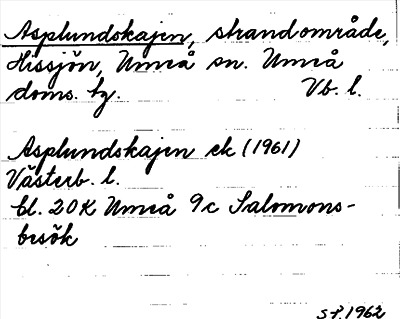 Asplundskajen, strandområde,
Hissjön, Umeå sn. Umeå
doms. tg. Vb. l.
Asplundskajen ek (1961)
Västerb. l.
bl. 20K Umeå 9c Salomons-
besök
S.P. 1962